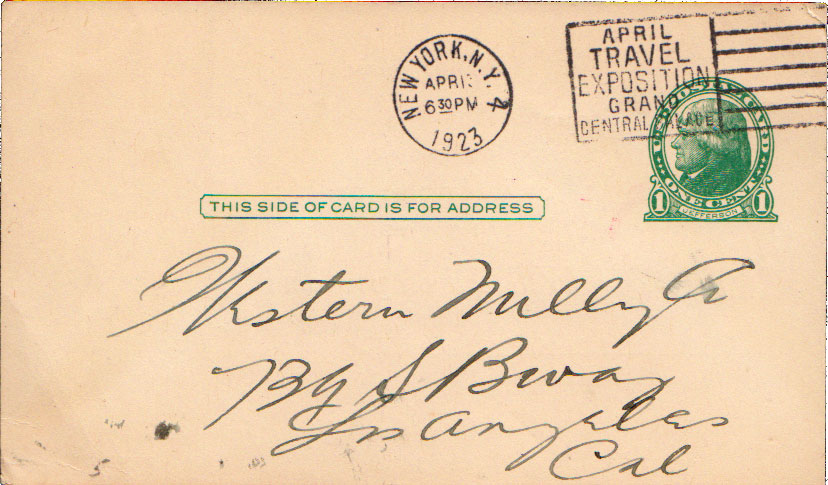 NEW YORK, N.Y. 4
APR
6 30 PM
1923
APRIL
TRAVEL
EXPOSITION
GRAND
CENTRAL PALACE
U.S. POSTAL CARD
ONE CENT
1 JEFFERSON 1
THIS SIDE OF CARD IS FOR ADDRESS
Western
S Bway
Los Angeles
Cal
5